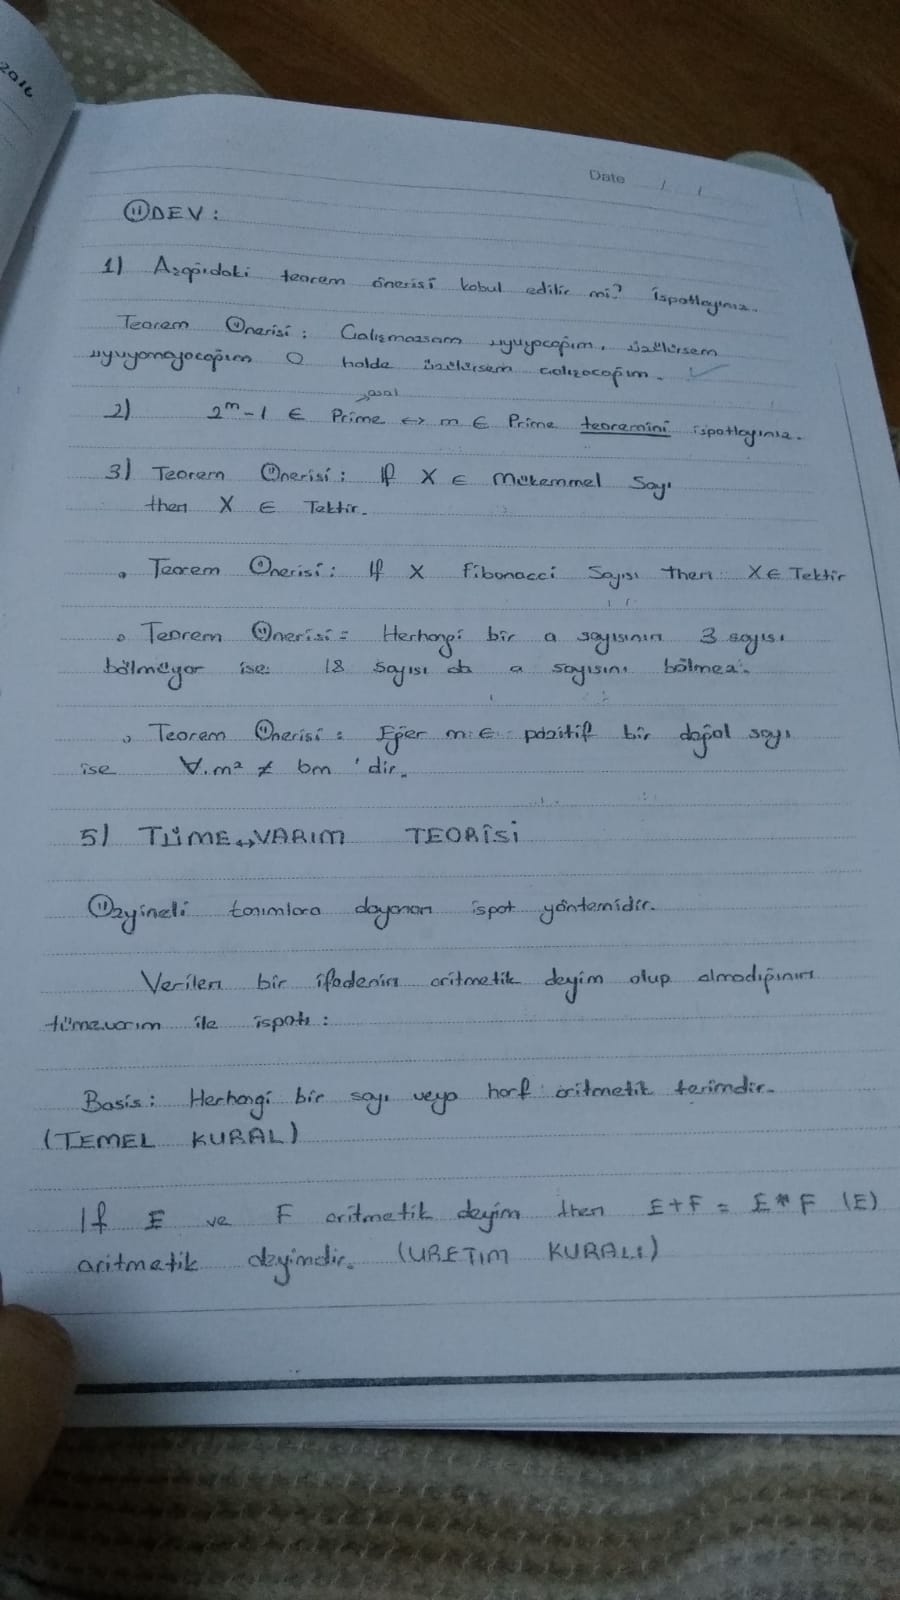 2016
Date / /
ÖDEV :
1) Aşağıdaki teorem önerisi kabul edilir mi? İspatlayınız.
Teorem Önerisi : Çalışmazsam uyuyacağım. üzülürsem
uyuyamayacağım O halde üzülürsem çalışacağım.
asal
2) 2^m-1 ∈ Prime <-> m ∈ Prime teoremini ispatlayınız.
3) Teorem Önerisi : If X ∈ Mükemmel Sayı
then X ∈ Tektir.
• Teorem Önerisi : If X Fibonacci Sayısı then X ∈ Tektir
• Teorem Önerisi = Herhangi bir a sayısının 3 sayısı
bölmüyor ise 18 sayısı da a sayısını bölmez.
• Teorem Önerisi : Eğer m ∈ pozitif bir doğal sayı
ise ∀.m² ≠ bm 'dir.
5) TÜME↔VARIM TEORİSİ
Özyineli tanımlara dayanan ispat yöntemidir.
Verilen bir ifadenin aritmetik deyim olup olmadığının
tümevarım ile ispatı :
Basis : Herhangi bir sayı veya harf aritmetik terimdir.
(TEMEL KURAL)
If E ve F aritmetik deyim then E+F = E*F (E)
aritmetik deyimdir. (URETIM KURALI)